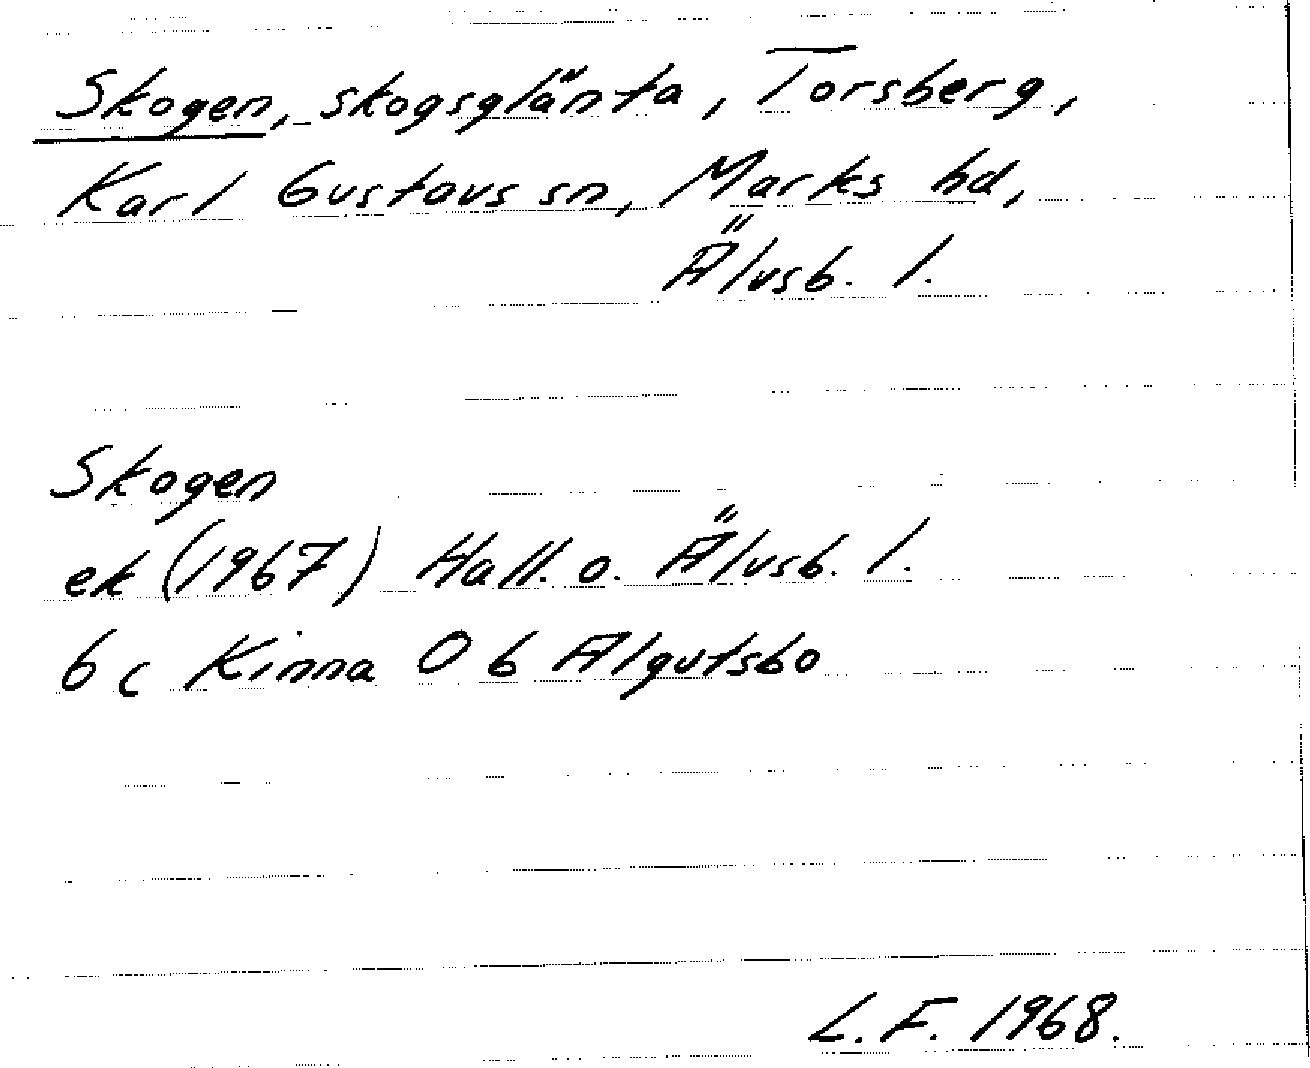 Skogen, skogsglänta, Torsberg,
Karl Gustavs sn, Marks hd,
Älvsb. l.
Skogen
ek (1967) Hall. o. Älvsb. l.
6 c Kinna 0 6 Algutsbo
L. F. 1968.